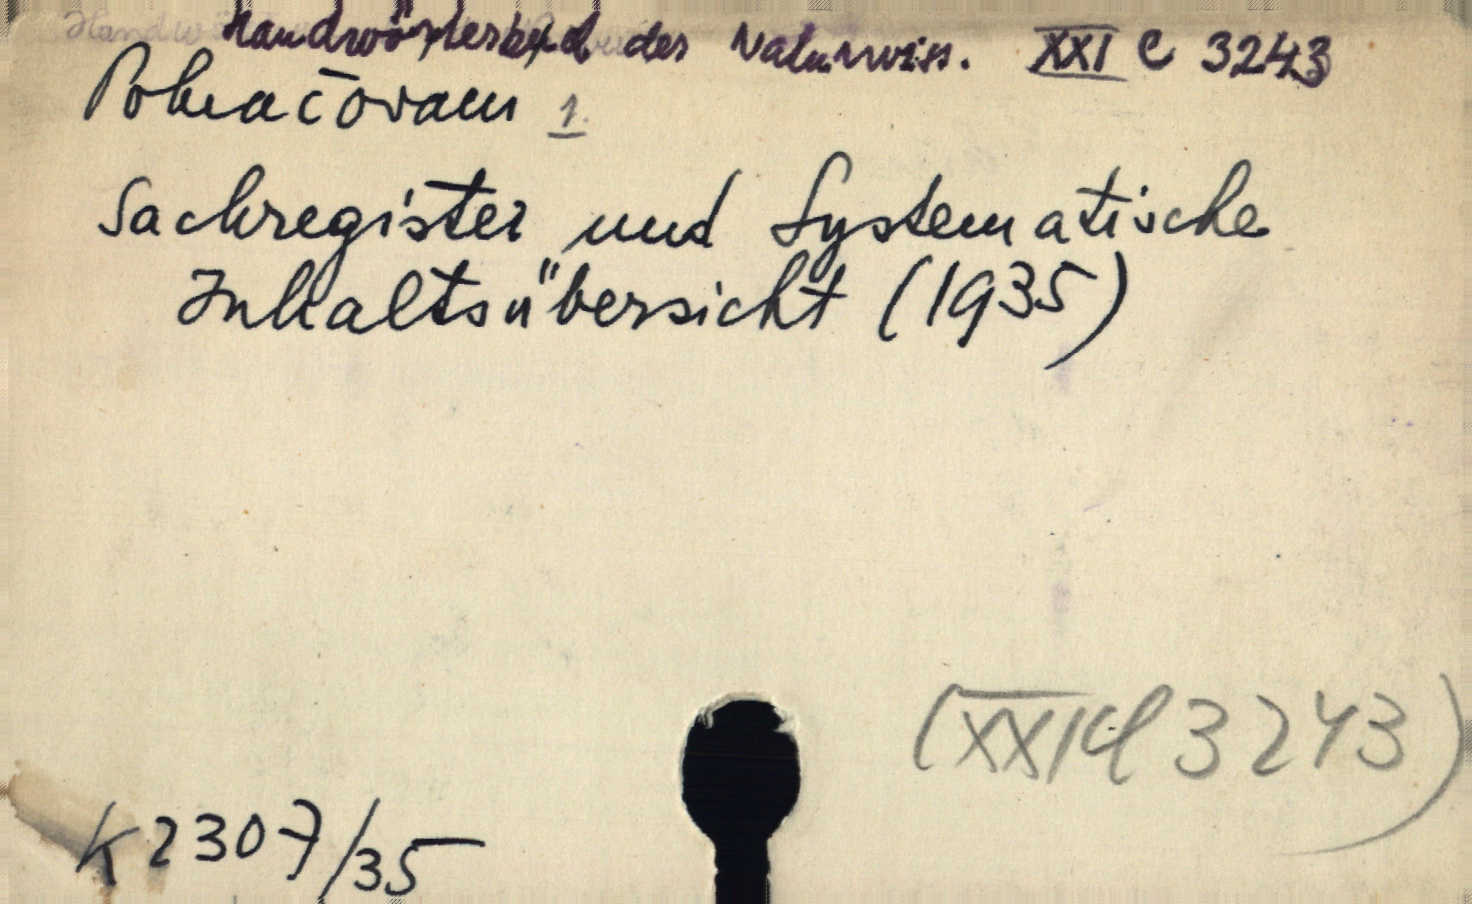 Handwörterbuch der Naturwiss. XXI C 3243
Pokračovani 1.
Sachregister und Systematische
Inhaltsübersicht (1935)
(XXI C 3243)
K 2307/35